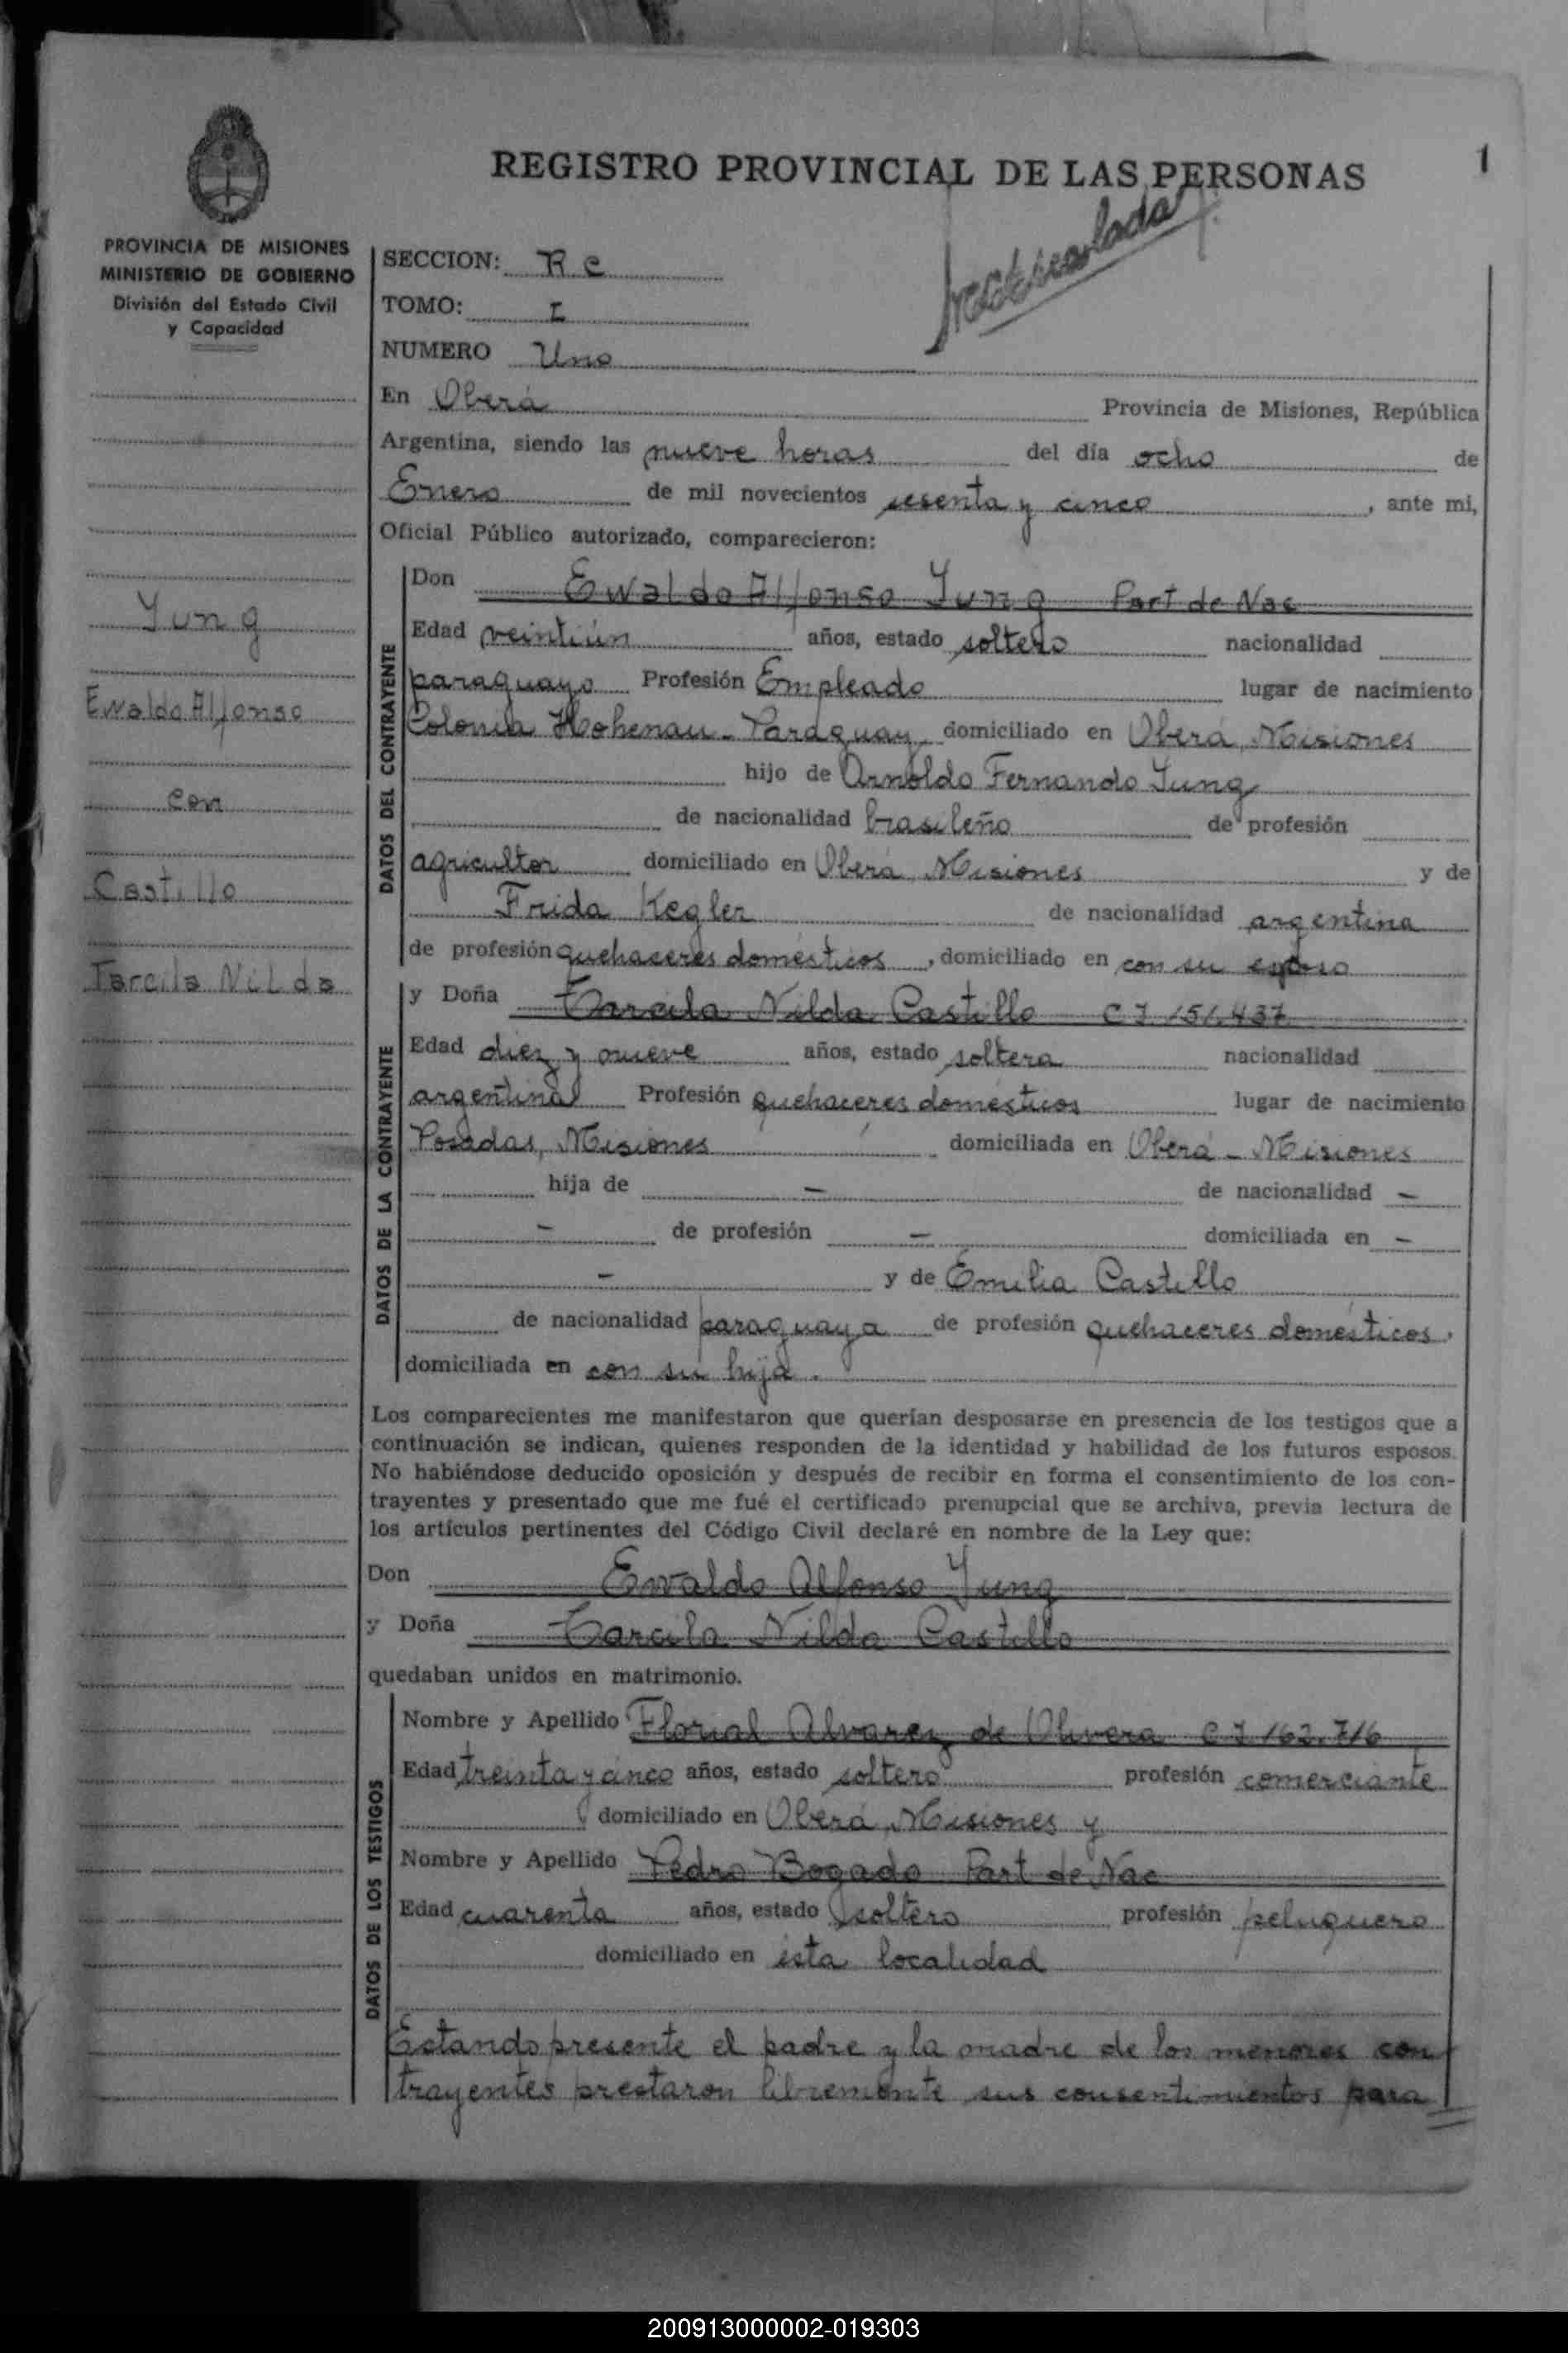 REGISTRO PROVINCIAL DE LAS PERSONAS
1
PROVINCIA DE MISIONES
MINISTERIO DE GOBIERNO
División del Estado Civil
y Capacidad
Yung
Ewaldo Alfonso
con
Castillo
Tarcila Nilda
SECCION: R C
TOMO: I
NUMERO Uno
En Oberá Provincia de Misiones, República
Argentina, siendo las nueve horas del día ocho de
Enero de mil novecientos sesenta y cinco, ante mi,
Oficial Público autorizado, comparecieron:
DATOS DEL CONTRAYENTE
Don Ewaldo Alfonso Yung Part de Nac
Edad veintiún años, estado soltero nacionalidad
paraguayo Profesión Empleado lugar de nacimiento
Colonia Hohenau - Paraguay domiciliado en Oberá, Misiones
hijo de Arnoldo Fernando Yung
de nacionalidad brasileño de profesión
agricultor domiciliado en Oberá Misiones y de
Frida Kegler de nacionalidad argentina
de profesión quehaceres domésticos, domiciliado en con su esposo
DATOS DE LA CONTRAYENTE
y Doña Tarcila Nilda Castillo C I 151.437
Edad diez y nueve años, estado soltera nacionalidad
argentina Profesión quehaceres domésticos lugar de nacimiento
Posadas, Misiones domiciliada en Oberá - Misiones
hija de - de nacionalidad -
- de profesión - domiciliada en -
- y de Emilia Castillo
de nacionalidad paraguaya de profesión quehaceres domésticos.
domiciliada en con su hija.
Los comparecientes me manifestaron que querían desposarse en presencia de los testigos que a
continuación se indican, quienes responden de la identidad y habilidad de los futuros esposos.
No habiéndose deducido oposición y después de recibir en forma el consentimiento de los con-
trayentes y presentado que me fué el certificado prenupcial que se archiva, previa lectura de
los artículos pertinentes del Código Civil declaré en nombre de la Ley que:
Don Ewaldo Alfonso Yung
y Doña Tarcila Nilda Castillo
quedaban unidos en matrimonio.
DATOS DE LOS TESTIGOS
Nombre y Apellido Florial Alvarez de Olivera C I 162.716
Edad treinta y cinco años, estado soltero profesión comerciante
domiciliado en Oberá, Misiones y
Nombre y Apellido Pedro Bogado Part de Nac
Edad cuarenta años, estado soltero profesión peluquero
domiciliado en ésta localidad
Estando presente el padre y la madre de los menores con
trayentes prestaron libremente sus consentimientos para
200913000002-019303